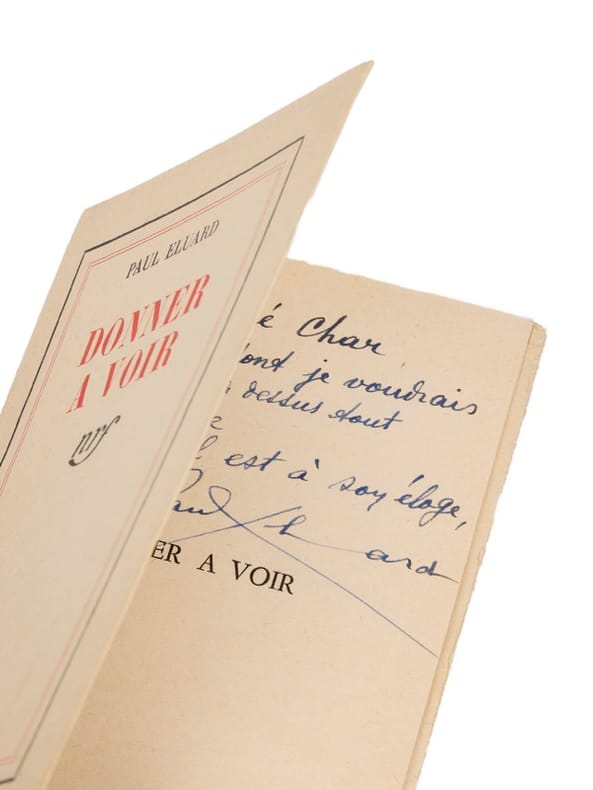 PAUL ELUARD
DONNER
A VOIR
nrf
é Char
dont je voudrais
dessus tout
est à son éloge,
ER A VOIR